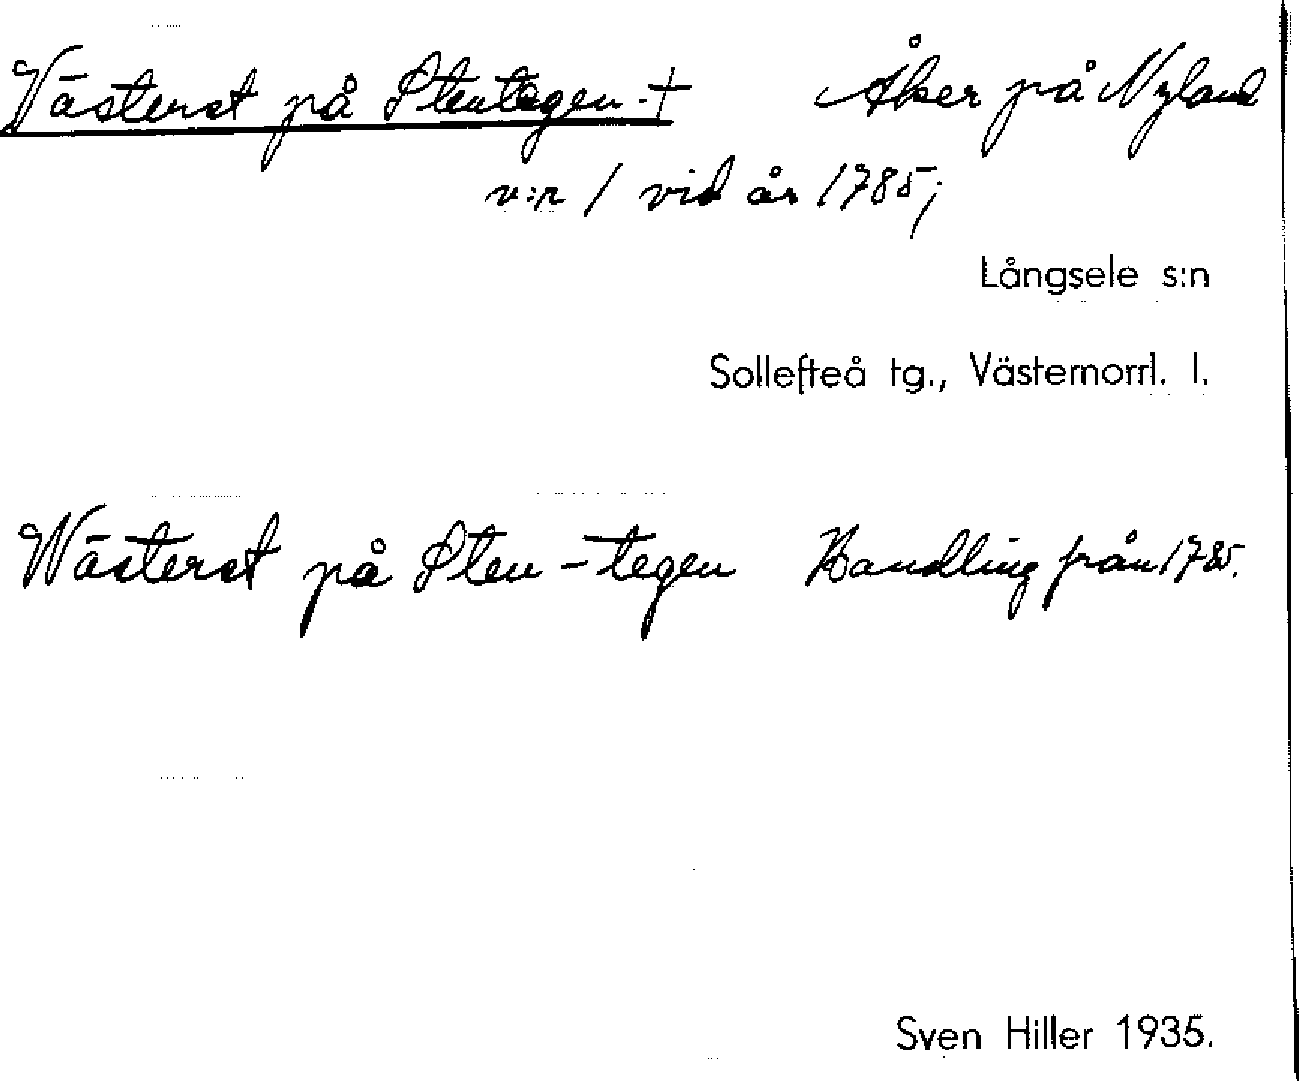 Västerst på Stentegen † Åker på Nyland
n:r 1 vid år 1785;
Långsele s:n
Sollefteå tg., Västernorrl. l.
Wästerst på Sten-tegen Handling från 1785.
Sven Hiller 1935.